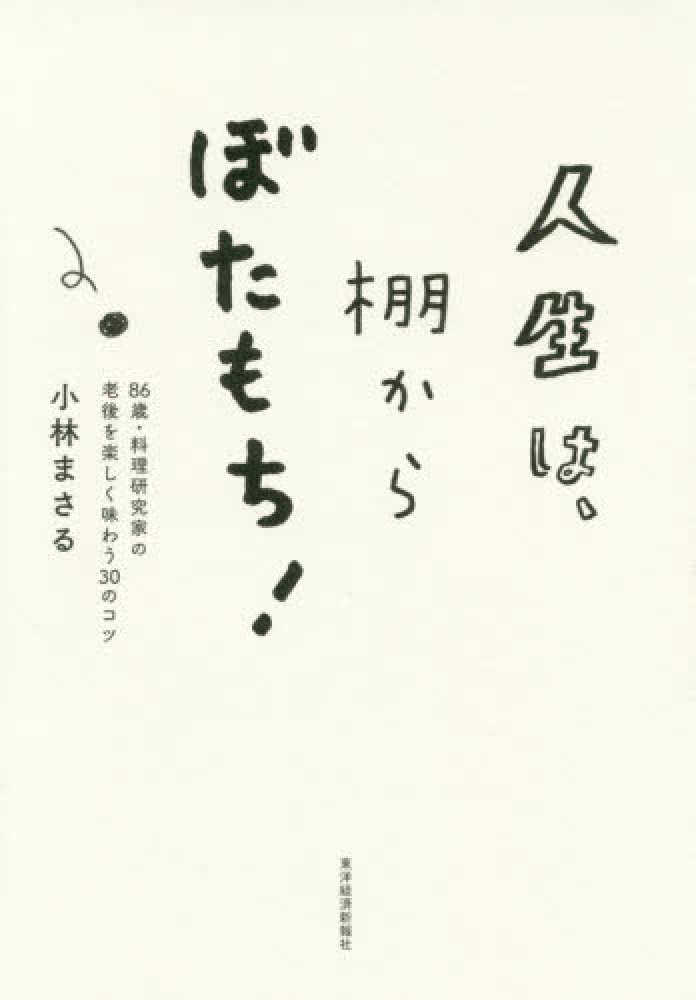 人生は、
棚から
ぼたもち!
86歳・料理研究家の
老後を楽しく味わう30のコツ
小林まさる
東洋経済新報社